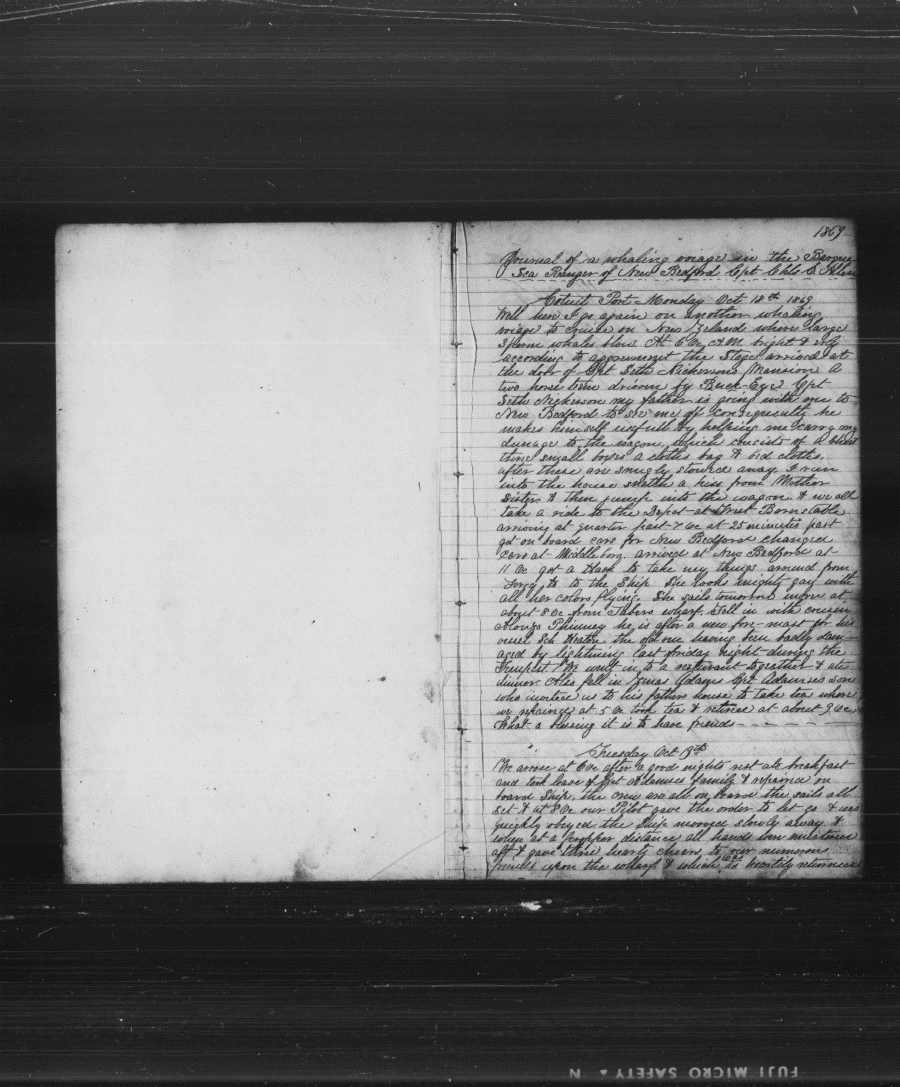 1869
Journal of a whaling voiage in the Barque
Sea Ranger of New Bedford Cpt Chls C. Allen
Cotuit Port Monday Oct 18th 1869
Well here I go again on another whaling
voiage to cruise on New Zeland where large
Sperm whales blow. At 6 Oc A.M. bright &
according to aggreement the Stage arrived at
the door of Cpt Seth Nickersons Mansion A
two horse driven by Buck-Eye Cpt
Seth Nickerson my father is going with me to
New Bedford to see me off consequently he
makes himself usefull by helping me carry my
dunage to the wagon, which concists of a chest
three small boxes a cloths bag & bed cloths,
after these are snugly stowed away I run
into the house snatch a kiss from Mother
Sister & then jump into the wagon & we all
take a ride to the Depot at West Barnstable
arriving at quarter past 7 Oc at 25 minutes past
got on board cars for New Bedford changed
Cars at Middleboro, arrived at New Bedford at
11 Oc got a Hack to take my things around from
to to the Ship. She looks mighty gay with
all her colors flying. She sails tomorrow morn at
about 8 Oc from Tabers wharf. Fell in with cousin
Alonzo Phinney he is after a new fore-mast for his
vessel Sch Heaton the old one having been badly dam-
aged by lightning last friday night during the
Tempest. We went in to a resturant together & ate
dinner. Also fell in Adams Cpt Adamses son
who invited us to his fathers house to take tea where
we repaired at 5 Oc took tea & retired at about 9 Oc
What a blessing it is to have friends - - - -
Tuesday Oct 19th
We arose at 6 Oc after a good nights rest ate breakfast
and took leave of Cpt Adamses family & repaired on
board Ship. the crew are all on board the sails all
set & at 8 Oc our Pilot gave the order to let go & was
quickly obeyed the Ship moved slowly away &
when at a propper distance all hands were mustered
aft & gave three hearty cheers to our numerous
friends upon the wharf & which was heartily returned
FUJI MICRO SAFETY ▲ N